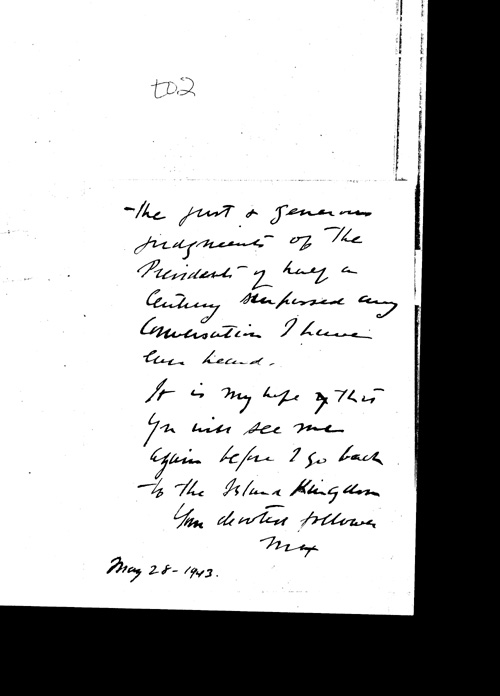 to.2
-the just & generous
judgments of The
Presidents of half a
Century surpassed any
Conversation I have
ever heard.
It is my hope that
You will see me
again before I go back
to the Island Kingdom
Your devoted follower
Max
May 28-1943.